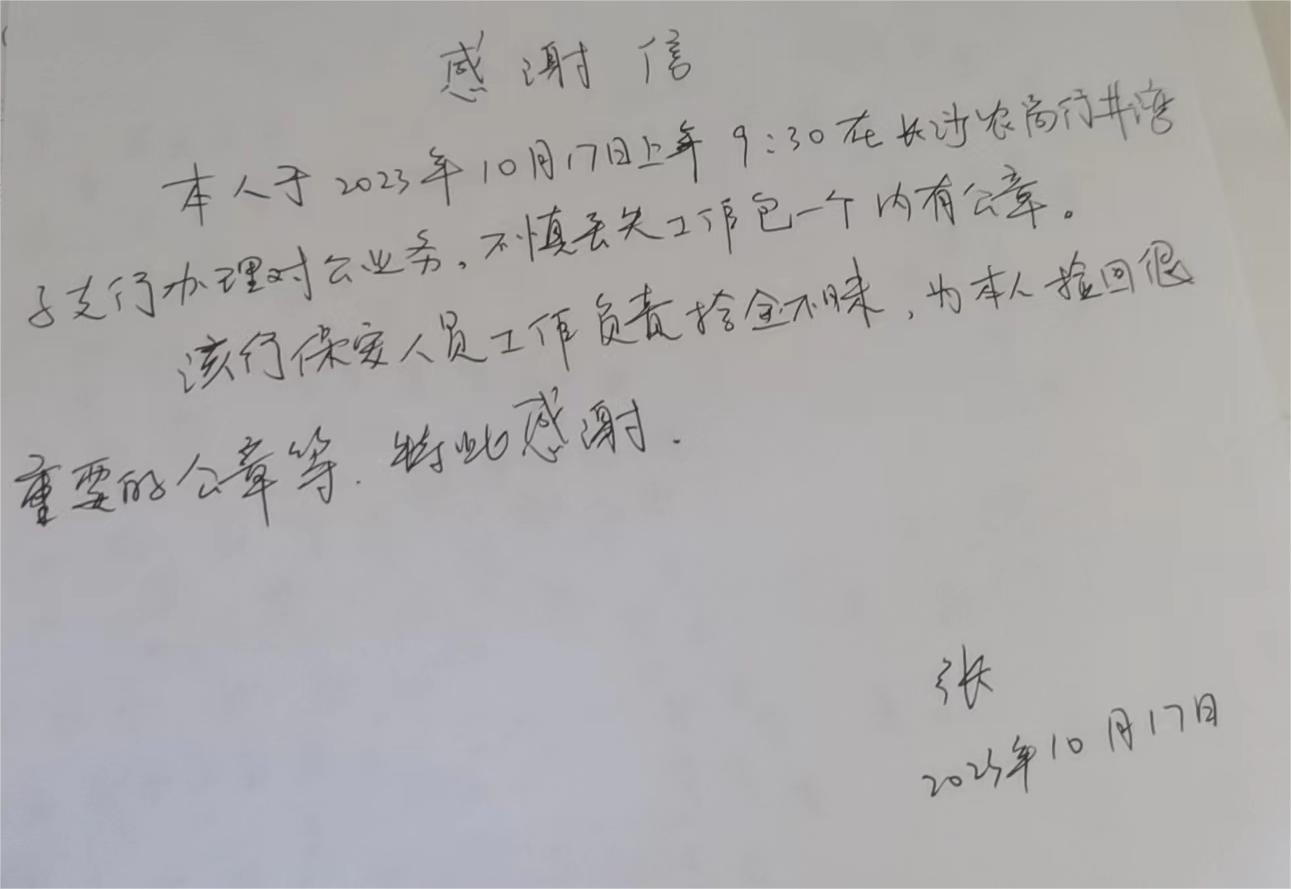 感谢信
本人于2023年10月17日上午9:30在长沙农商行井湾
子支行办理对公业务,不慎丢失工作包一个内有公章。
该行保安人员工作负责拾金不昧,为本人捡回很
重要的公章等.特此感谢.
张
2023年10月17日